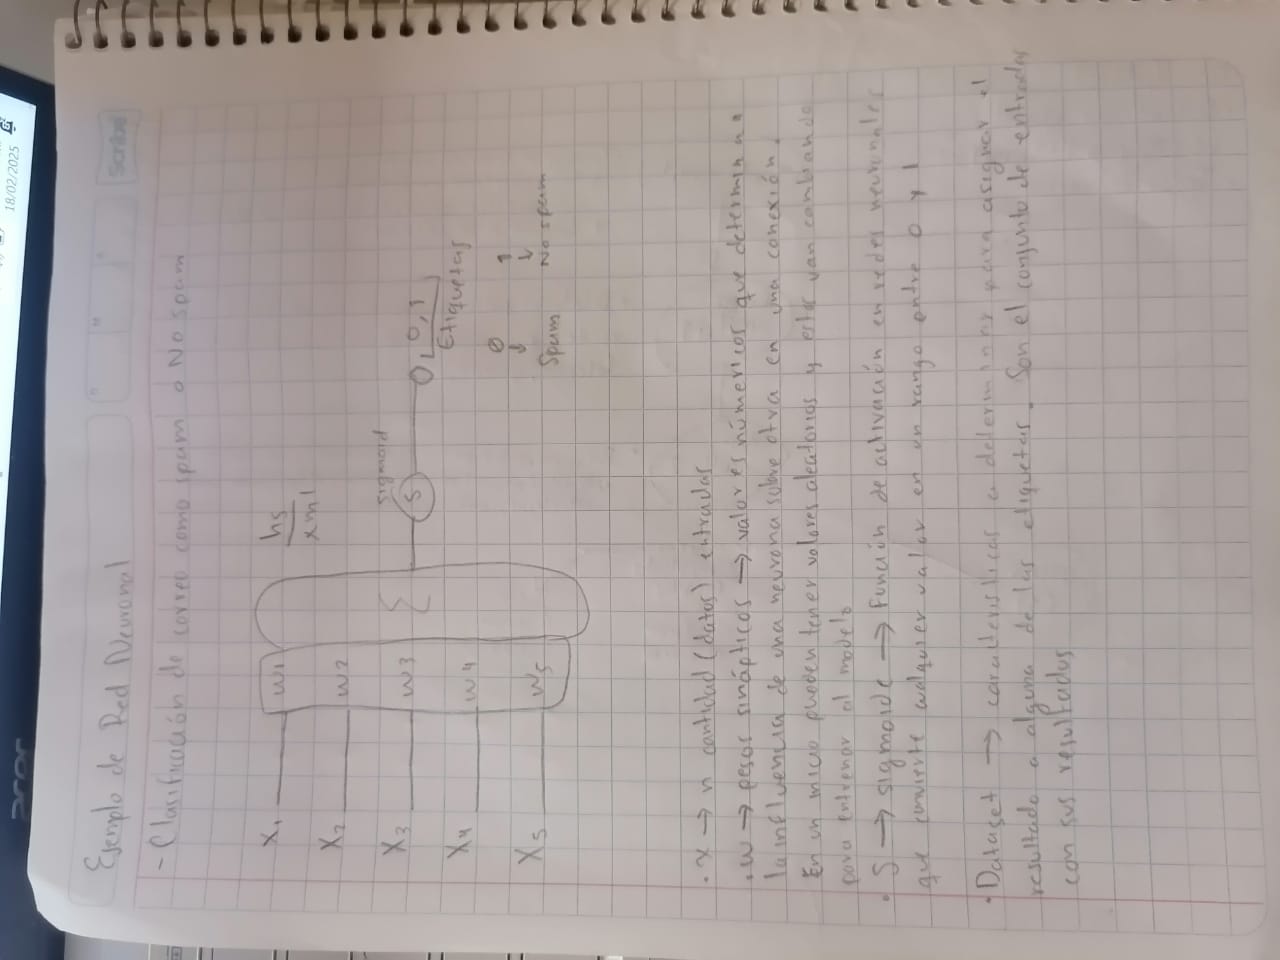 Ejemplo de Red Neuronal
Scribe
- Clasificación de correo como spam o No spam
X1 w1
X2 w2
X3 w3
X4 w4
X5 w5
Σ
h5
xml
sigmoid
S
O [0,1]
Etiquetas
0 1
↓ ↓
Spam No spam
• x → n cantidad (datos) entradas
• w → pesos sinápticos → valores númericos que determinan
la influencia de una neurona sobre otra en una conexión.
En un inicio pueden tener valores aleatorios y estos van cambiando
para entrenar al modelo
• S → sigmoide → Función de activación en redes neuronales
que convierte cualquier valor en un rango entre 0 y 1
• Dataset → características a determinar para asignar el
resultado a alguna de las etiquetas. Son el conjunto de entradas
con sus resultados
acer
18/02/2025